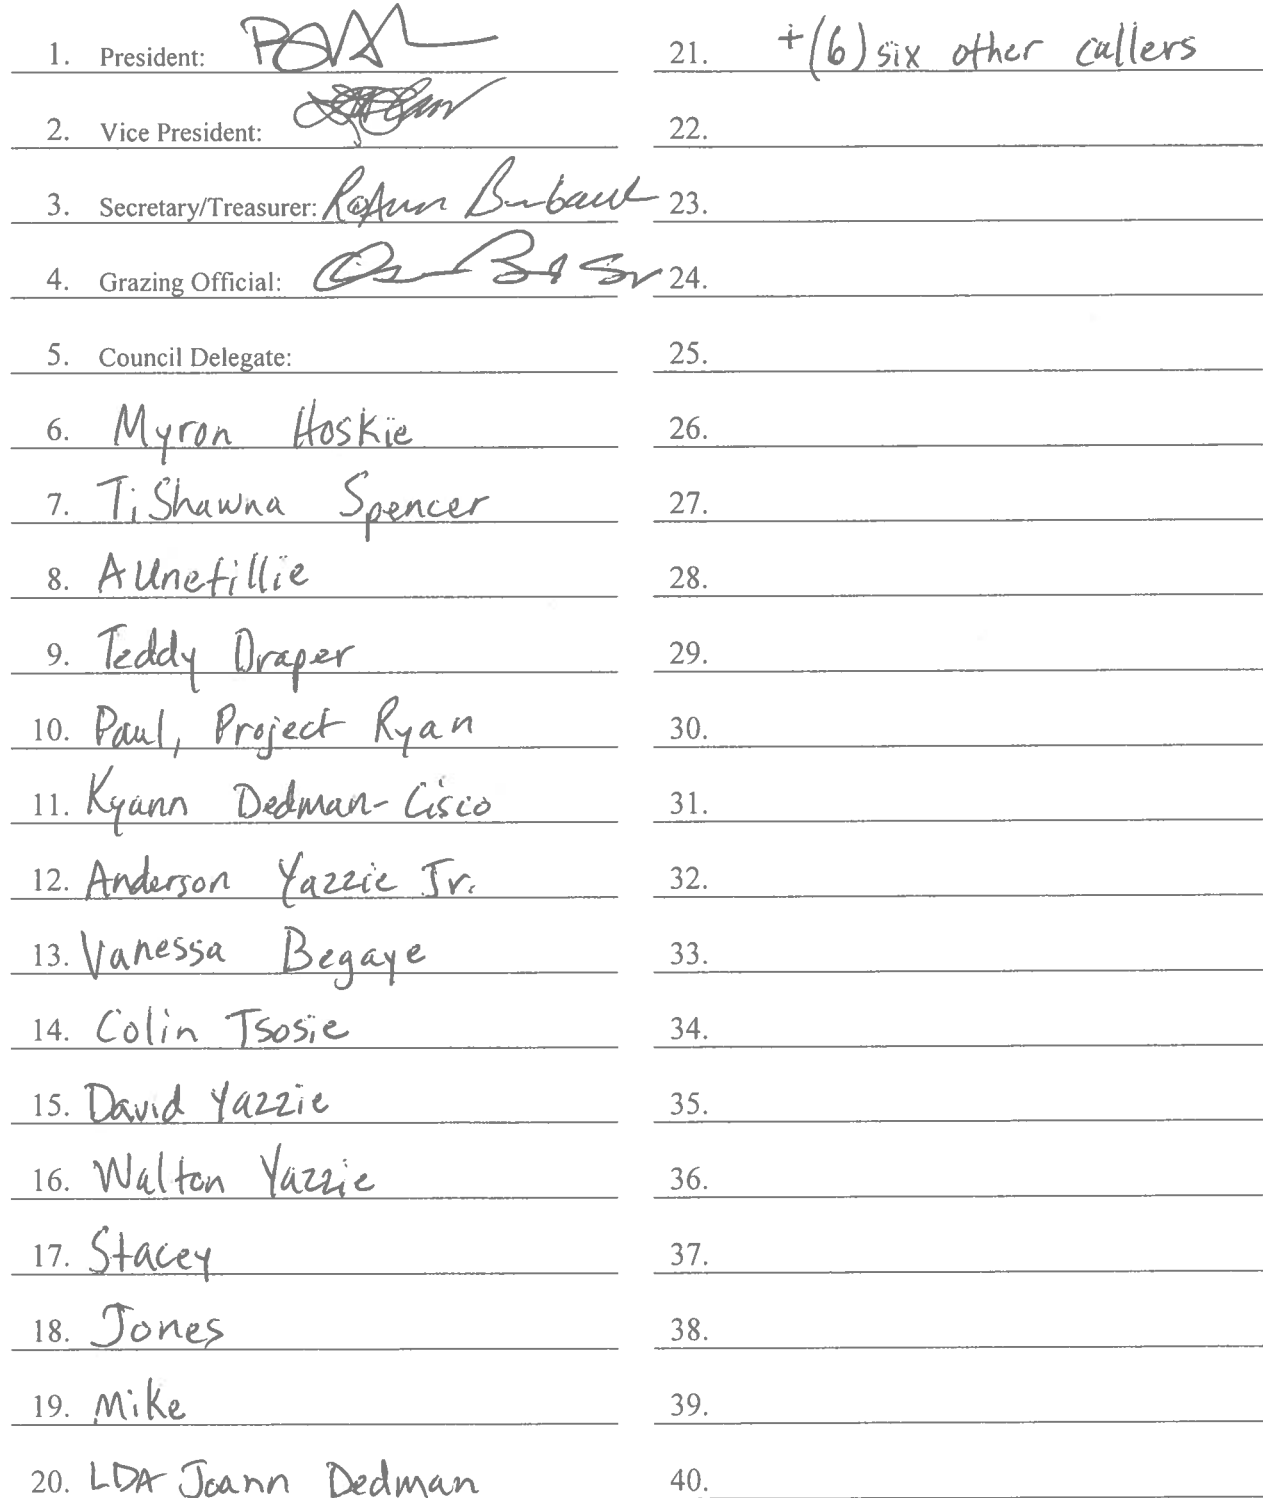 1. President:
2. Vice President:
3. Secretary/Treasurer: RoAnn Burbank
4. Grazing Official:
5. Council Delegate:
6. Myron Hoskie
7. TiShawna Spencer
8. AUnetillie
9. Teddy Draper
10. Paul, Project Ryan
11. Kyann Dedman-Cisco
12. Anderson Yazzie Jr.
13. Vanessa Begaye
14. Colin Tsosie
15. David Yazzie
16. Walton Yazzie
17. Stacey
18. Jones
19. Mike
20. LDA Joann Dedman
21. +(6) six other callers
22.
23.
24.
25.
26.
27.
28.
29.
30.
31.
32.
33.
34.
35.
36.
37.
38.
39.
40.